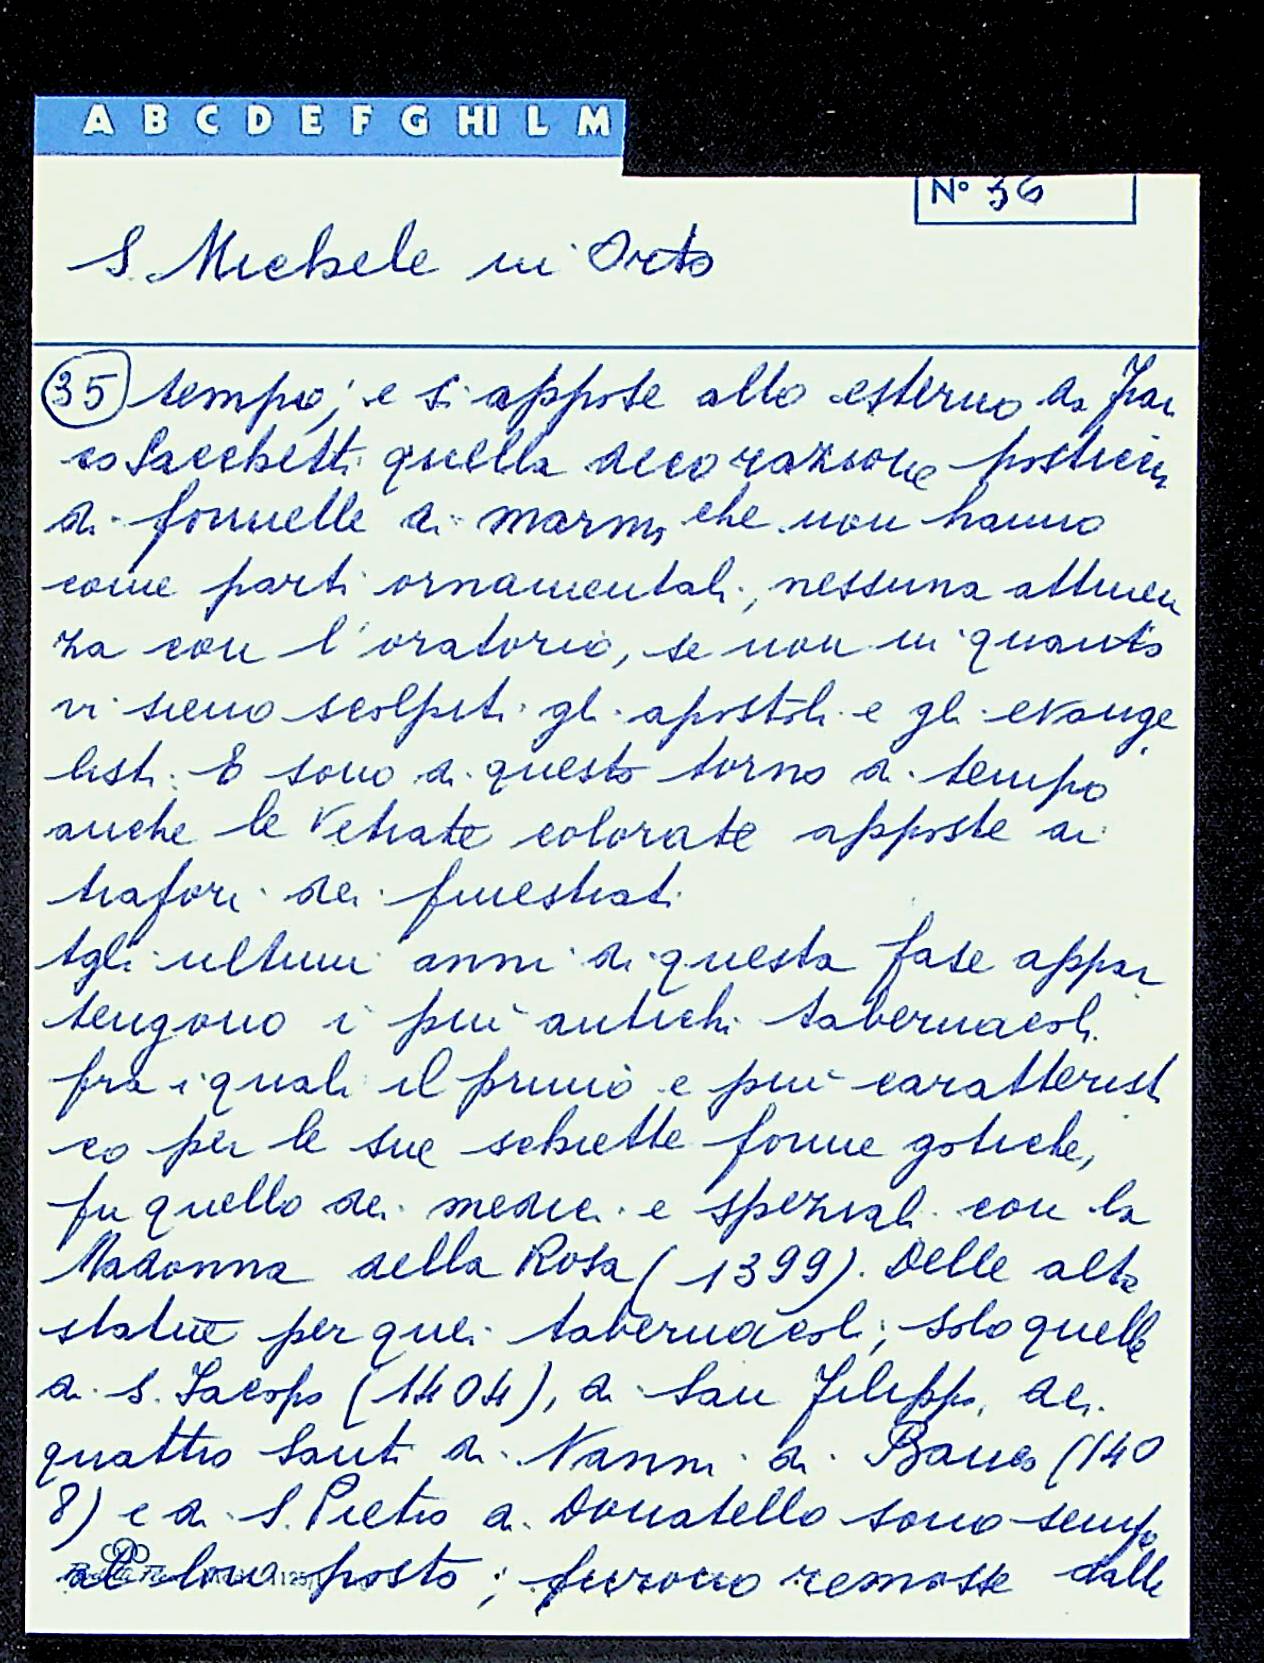 A B C D E F G HI L M
N° 36
S. Michele in Orto
35 tempo; e si appose allo esterno da Fran
co Sacchetti quella decorazione posticcia
di formelle di marmi, che non hanno
come parti ornamentali, nessuna attinen
za con l'oratorio, se non in quanto
vi sieno scolpiti gli apostoli e gli evange
listi. E sono di questo torno di tempo
anche le vetrate colorate apposte ai
trafori dei finestrati.
Agli ultimi anni di questa fase appar
tengono i più antichi tabernacoli.
fra i quali il primo e più caratteristi
co per le sue schiette forme gotiche,
fu quello dei medici e speziali con la
Madonna della Rosa (1399). Delle alte
statue per quei tabernacoli, solo quelle
di S. Jacopo (1404), di San Filippo, dei
quattro Santi di Nanni di Banco (140
8) e di S. Pietro di Donatello sono sempre
al loro posto; furono remosse dalle